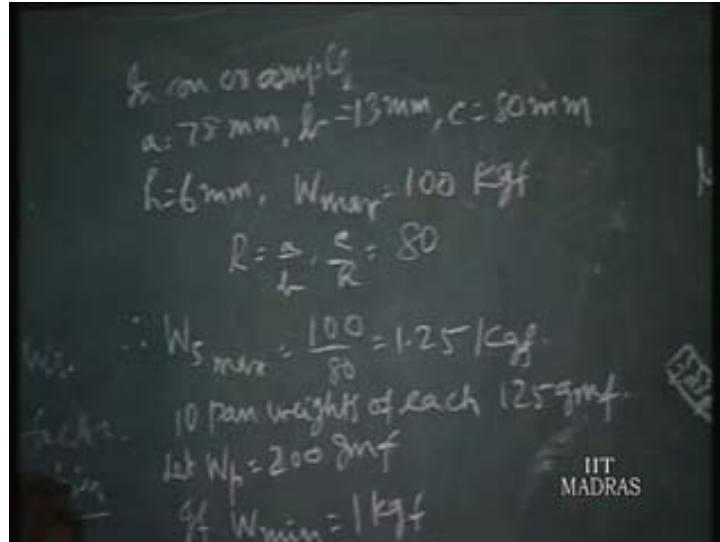 In an example,
a = 78 mm, b = 13 mm, c = 80 mm
h = 6 mm, Wmax = 100 Kgf
R = a/b · c/h = 80
∴ Ws max = 100/80 = 1.25 Kgf.
10 pan weights of each 125 gmf.
Let Wp = 200 gmf
If Wmin = 1 kgf
IIT
MADRAS